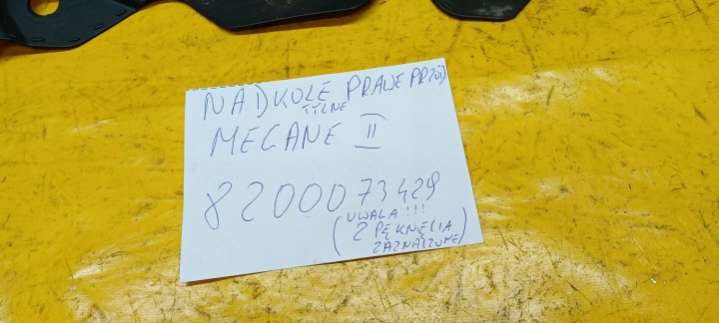 NADKOLE PRAWE PRZÓD
TYLNE
MEGANE II
8200073429
(UWAGA!!!
2 PĘKNĘCIA
ZAZNACZONE)